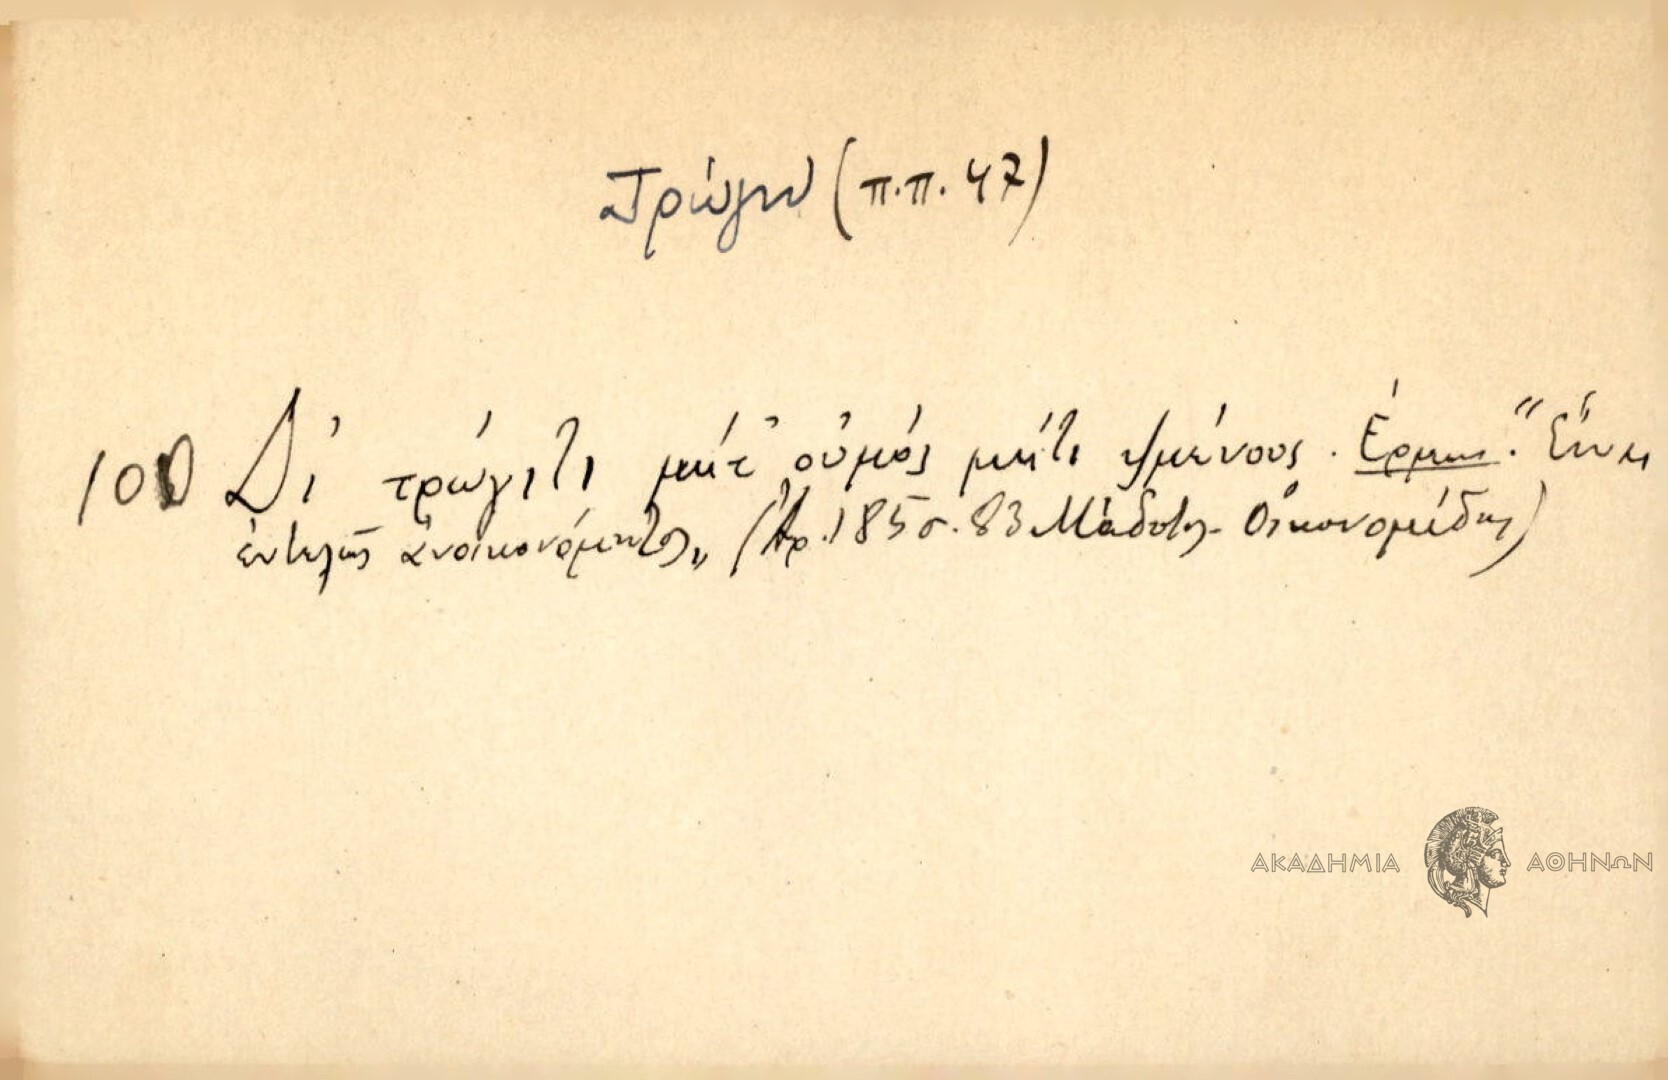 Τρώγω (π.π. 47)
100 Δὶ τρώγιτι μήτ' οὐμός μήτι ψμένους. Ἑρμ. "Εἶναι
ἐντελῶς ἀνοικονόμητος" (Ἀρ. 185 σ. 83 Μάδυτος - Οἰκονομίδης)
ΑΚΑΔΗΜΙΑ ΑΘΗΝΩΝ